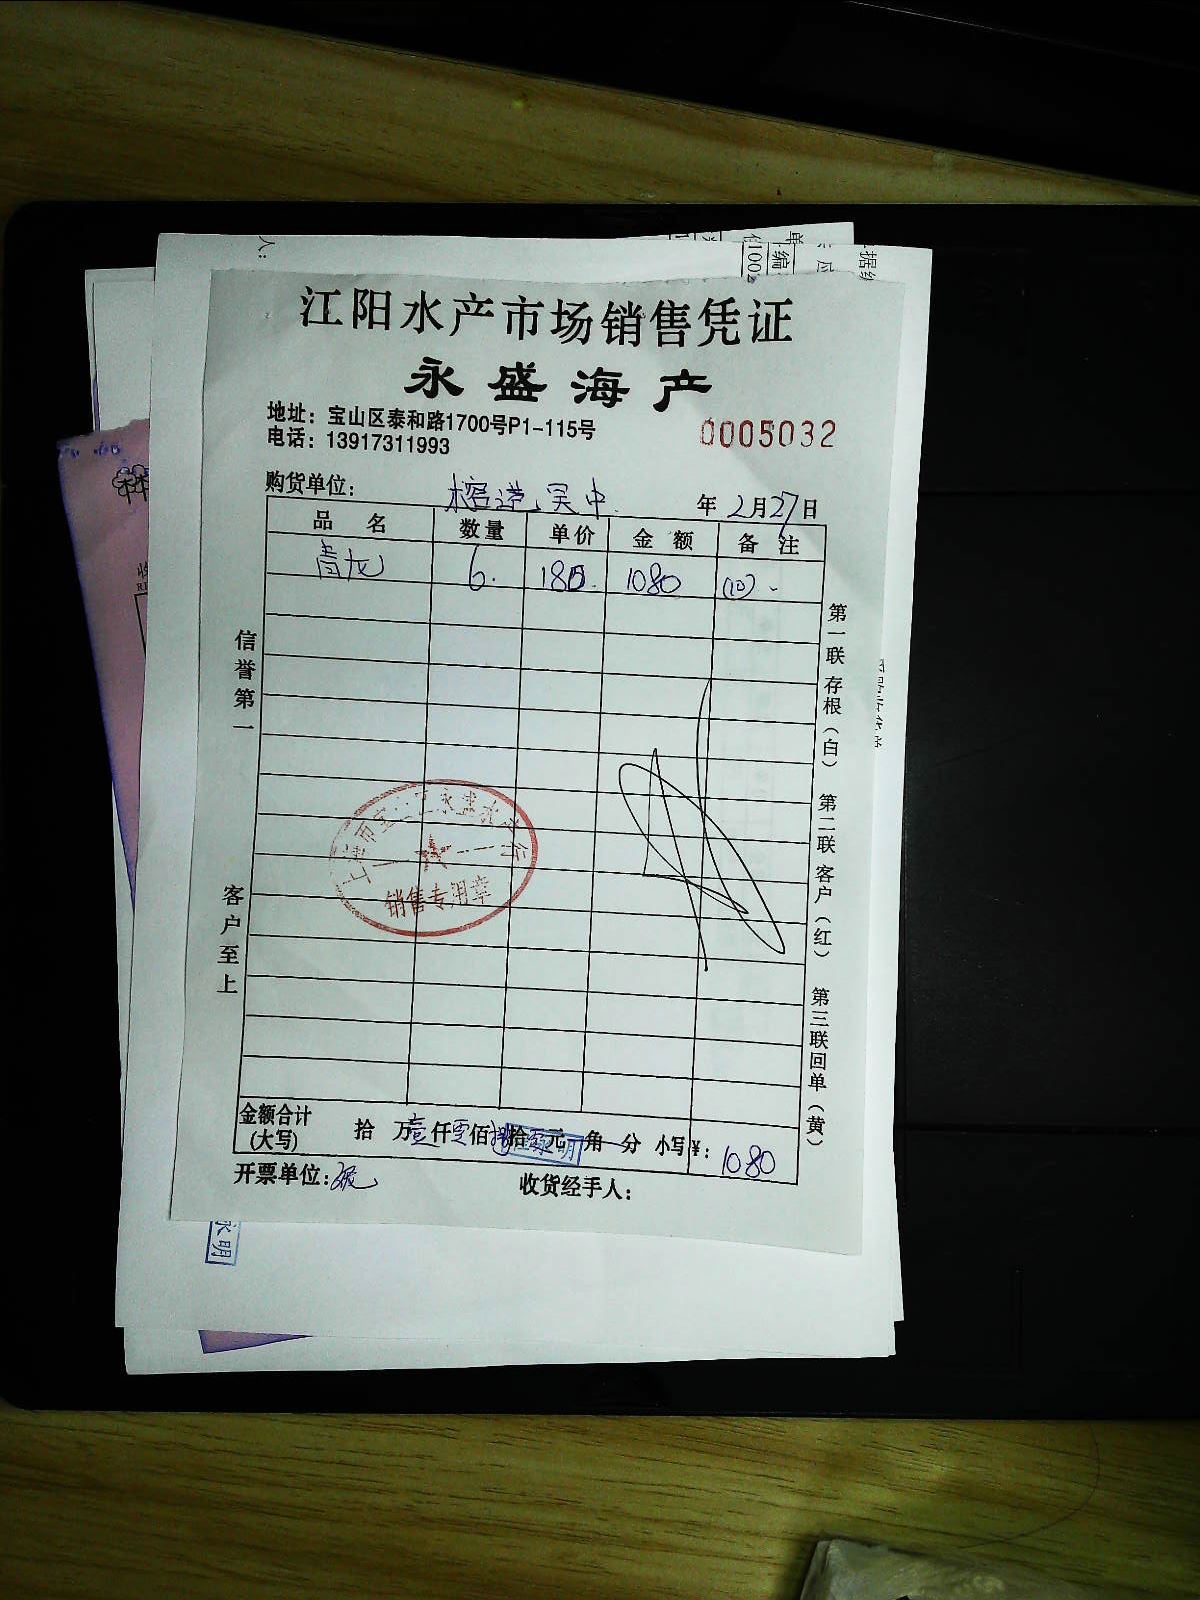 江阳水产市场销售凭证
永盛海产
地址：宝山区泰和路1700号P1-115号
电话：13917311993
0005032
购货单位： 榕港吴中 年2月27日
品名 数量 单价 金额 备注
青龙 6. 180. 1080 (10)
信誉第一
客户至上
第一联 存根（白） 第二联 客户（红） 第三联 回单（黄）
销售专用章
金额合计（大写） 拾 万壹仟零佰捌拾零元 角 分 小写¥：1080
开票单位： 收货经手人：
人：
100
编
永明